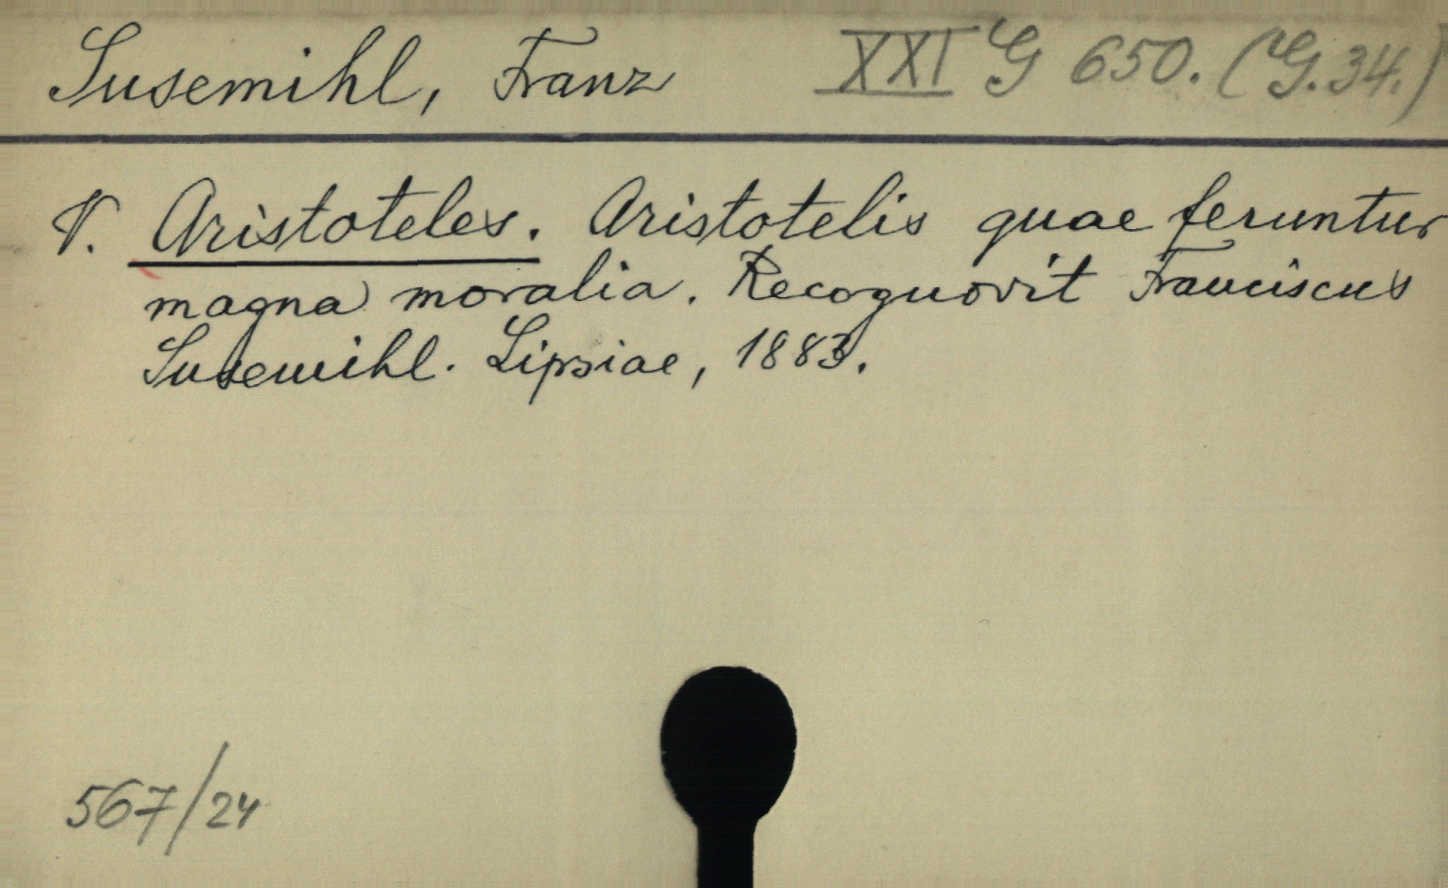 Susemihl, Franz XXI G 650. (G.34.)
V. Aristoteles. Aristotelis quae feruntur
magna moralia. Recognovit Franciscus
Susemihl. Lipsiae, 1883.
567/24